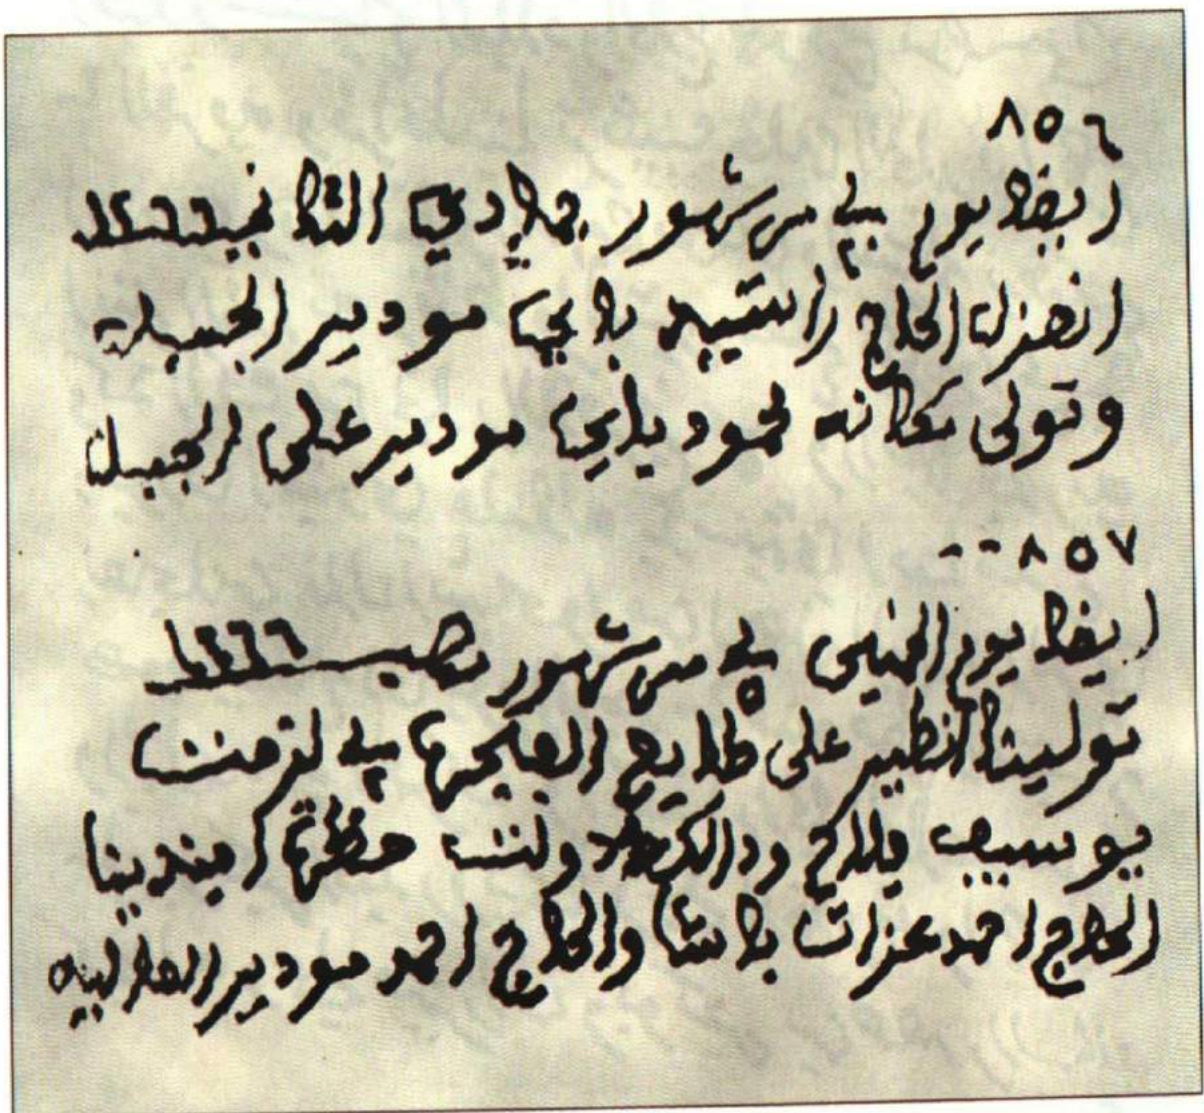 ٨٥٦
ايضا يوم في ٢ من شهور جمادي الثاني ١٢٦٦
انعزل الحاج راشيد باي مودير الجبل
وتولى مكانه محمود باي مودير على الجبل
٨٥٧
ايضا يوم الخميس في ٥ من شهور سنة ١٢٦٦
تولينا انظير على طلايع الفجرا في لزمنت
يوسيف فلاح ودالك دولت حظرة افيندينا
الحاج احمد عزات باشا والحاج احمد مودير المالية